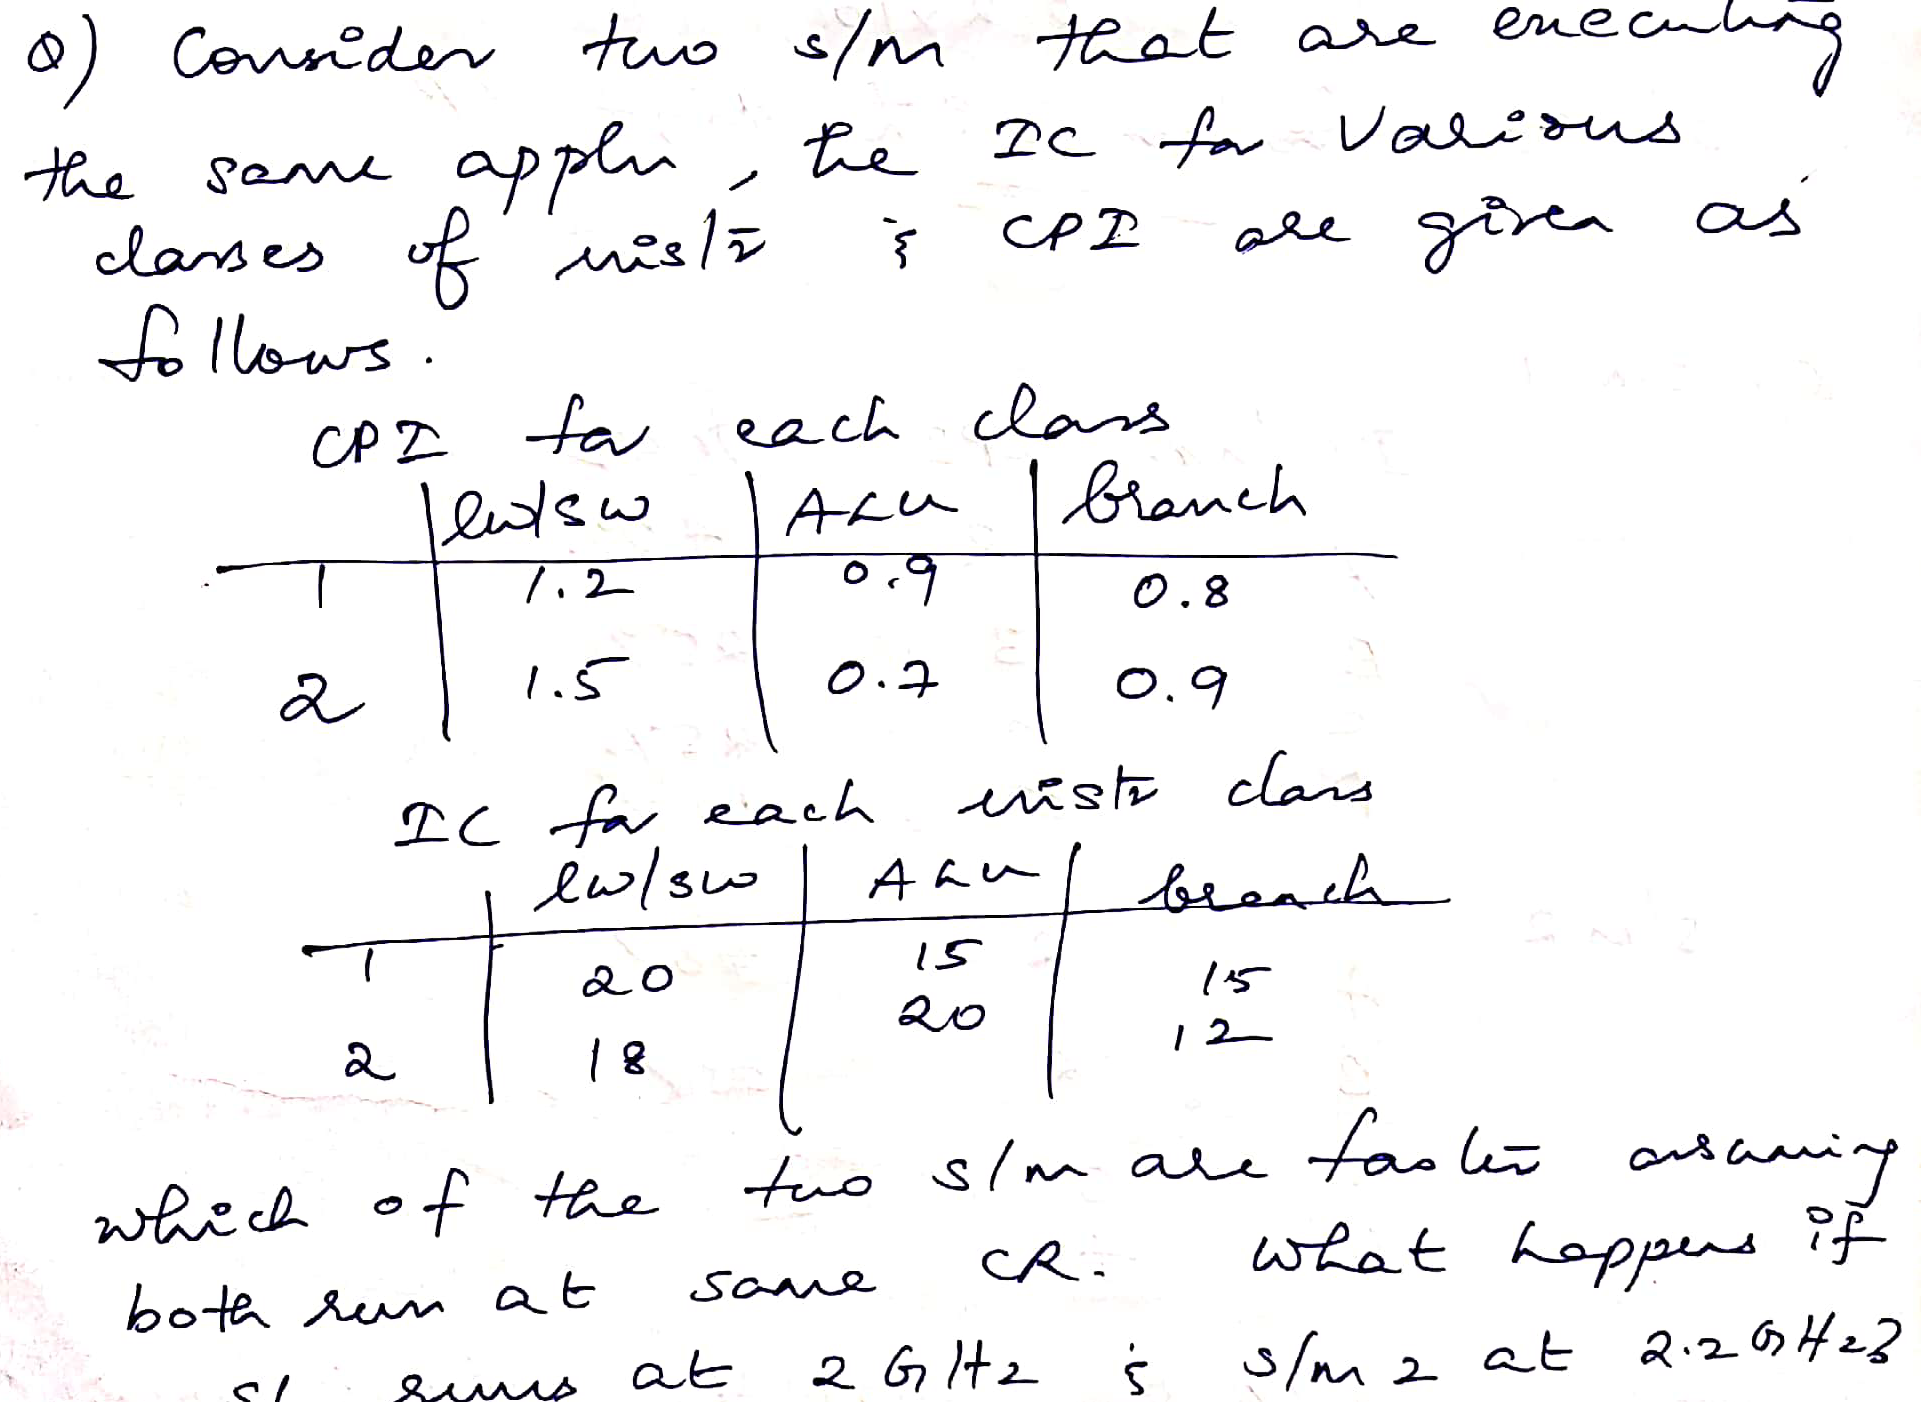 Q) Consider two s/m that are executing
the same appln, the IC for various
classes of instr & CPI are given as
follows.
CPI for each class
lw/sw ALU branch
1 1.2 0.9 0.8
2 1.5 0.7 0.9
IC for each instr class
lw/sw ALU branch
1 20 15 15
2 18 20 12
which of the two s/m are faster assuming
both run at same CR. What happens if
runs at 2 GHz & s/m 2 at 2.2 GHz?